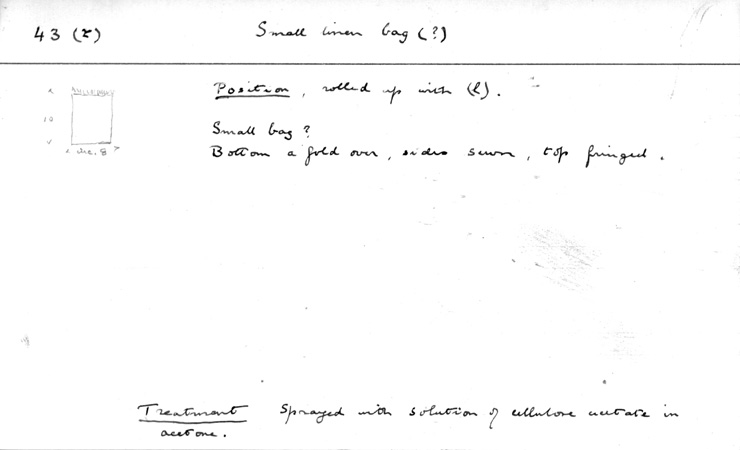 43 (r) Small linen bag (?)
Position, rolled up with (l).
10
circ. 8
Small bag?
Bottom a fold over, sides sewn, top fringed.
Treatment Sprayed with solution of cellulose acetate in
acetone.